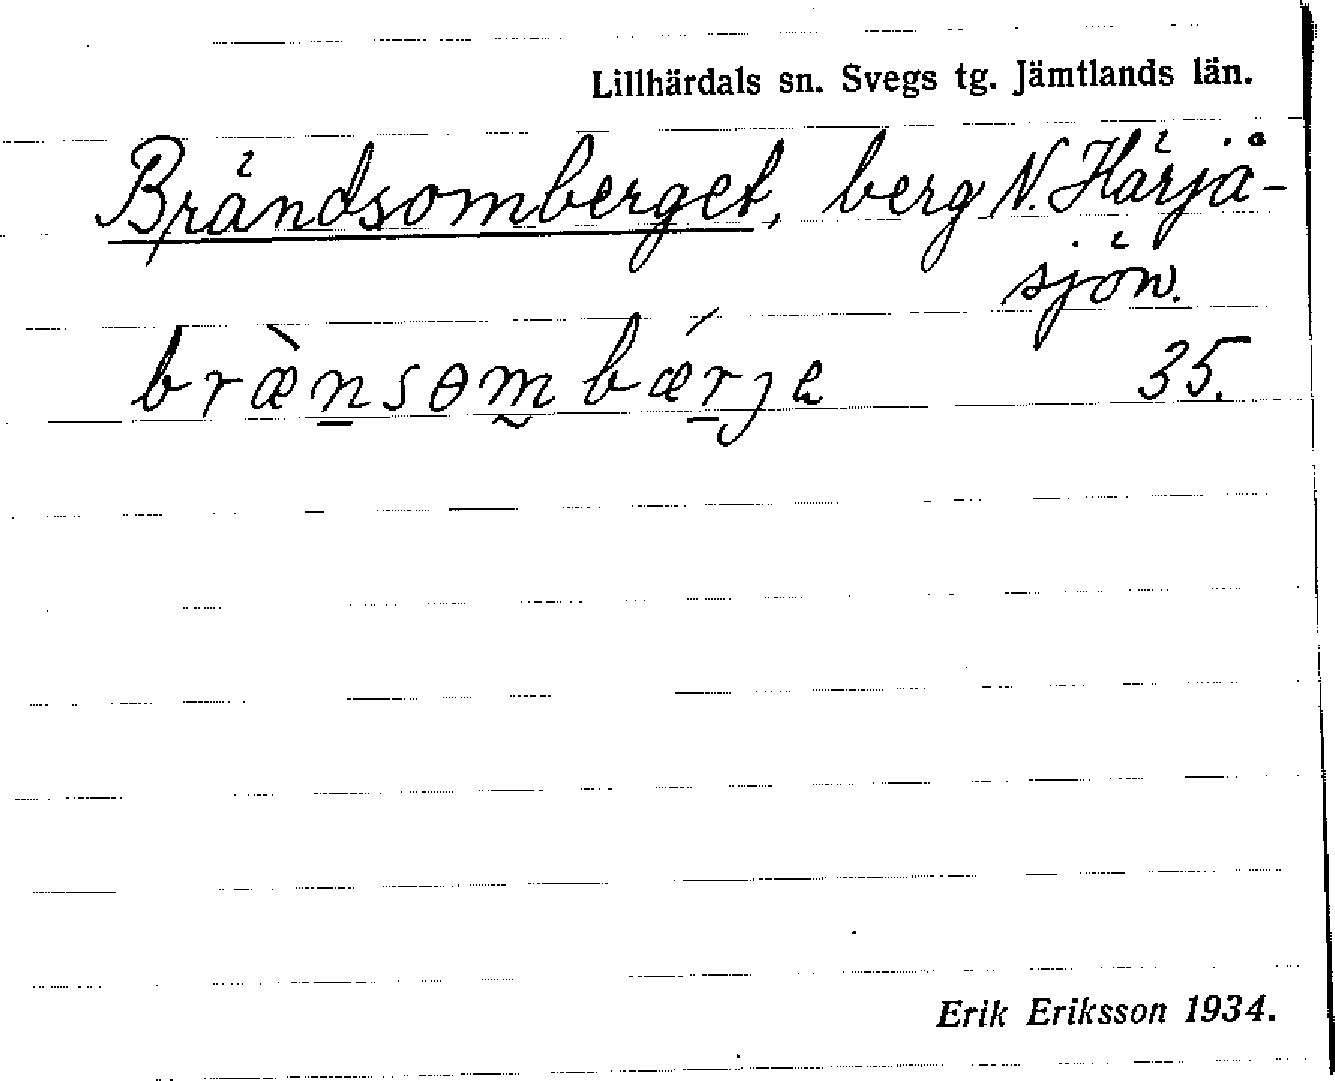 Lillhärdals sn. Svegs tg. Jämtlands län.
Brändsomberget, berg N. Härjå-
sjön.
bræ̀n̲som̰bǽr̲je 35.
Erik Eriksson 1934.